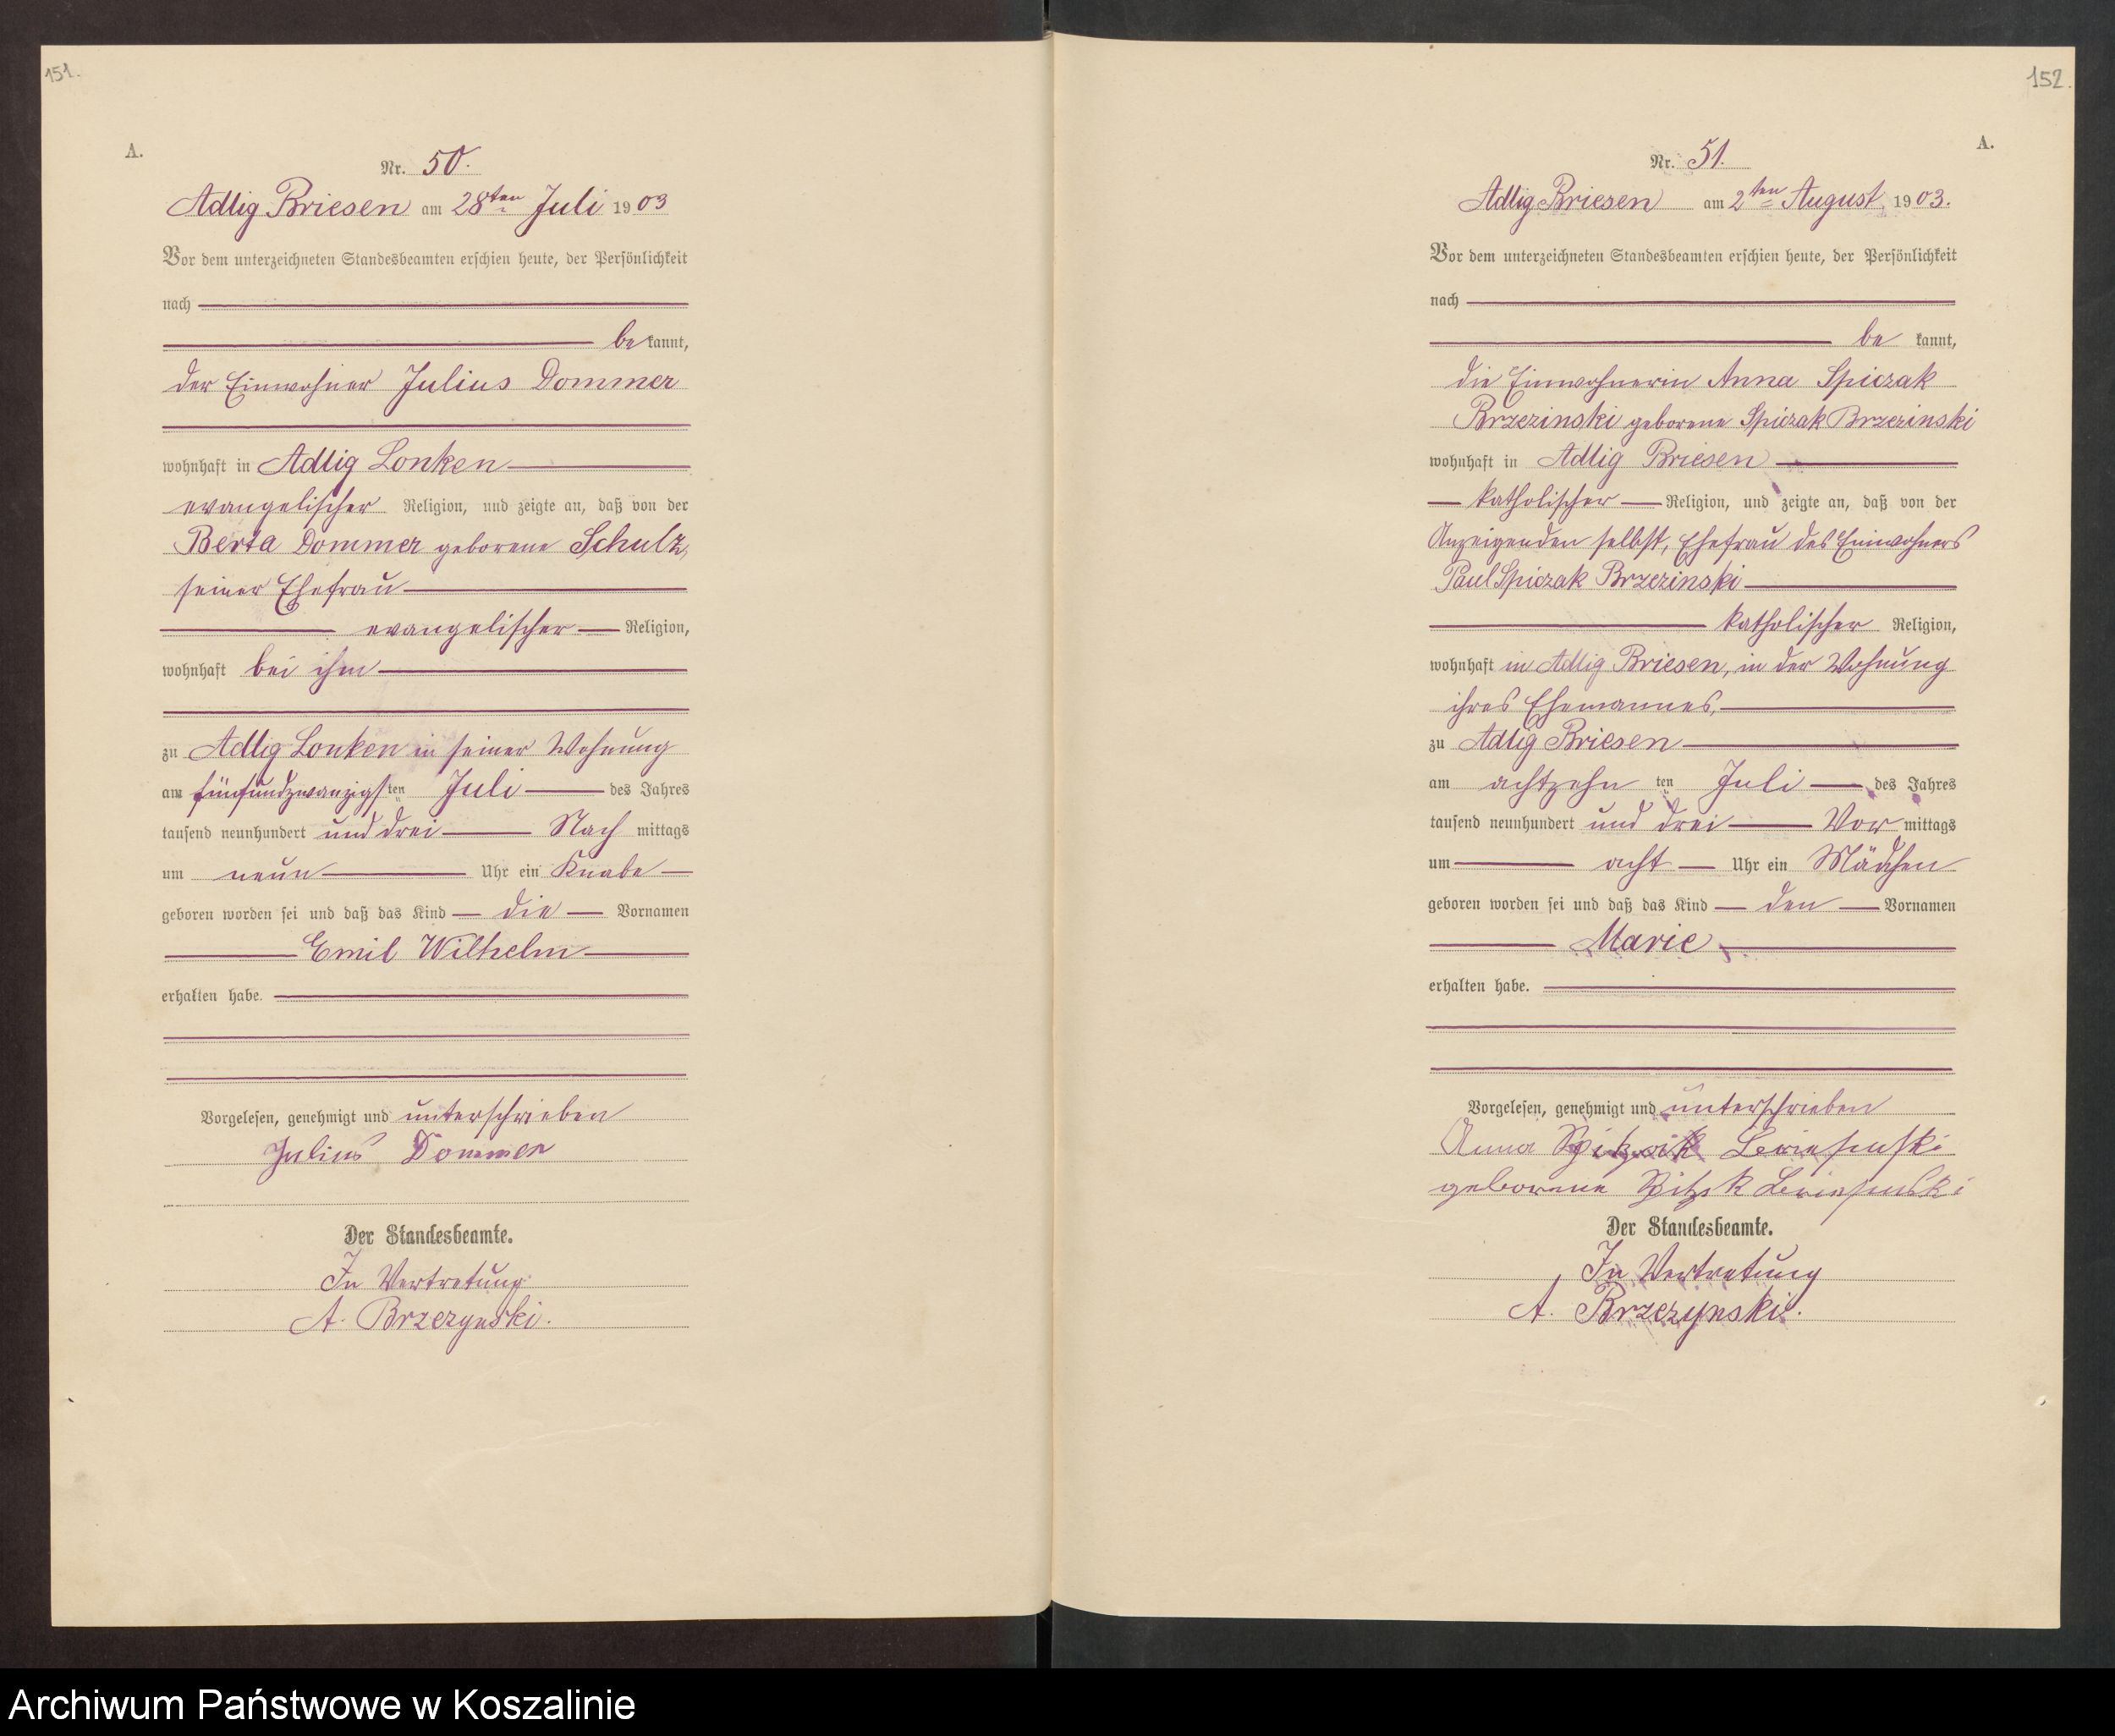 151.
A.
Nr. 50.
Adlig Briesen am 28ten Juli 1903
Vor dem unterzeichneten Standesbeamten erschien heute, der Persönlichkeit
nach
be kannt,
der Einwohner Julius Dommer
wohnhaft in Adlig Lonken
evangelischer Religion, und zeigte an, daß von der
Berta Dommer geborene Schulz,
seiner Ehefrau
evangelischer Religion,
wohnhaft bei ihm
zu Adlig Lonken in seiner Wohnung
am fünfundzwanzigsten Juli des Jahres
tausend neunhundert und drei Nach mittags
um neun Uhr ein Knabe
geboren worden sei und daß das Kind die Vornamen
Emil Wilhelm
erhalten habe.
Vorgelesen, genehmigt und unterschrieben
Julius Dommer
Der Standesbeamte.
In Vertretung
A. Brzezynski.
152.
A.
Nr. 51.
Adlig Briesen am 2ten August 1903.
Vor dem unterzeichneten Standesbeamten erschien heute, der Persönlichkeit
nach
be kannt,
die Einwohnerin Anna Spiczak
Brzezinski geborene Spiczak Brzezinski
wohnhaft in Adlig Briesen
katholischer Religion, und zeigte an, daß von der
Anzeigenden selbst, Ehefrau des Einwohners
Paul Spiczak Brzezinski
katholischer Religion,
wohnhaft in Adlig Briesen, in der Wohnung
ihres Ehemannes,
zu Adlig Briesen
am achtzehn ten Juli des Jahres
tausend neunhundert und drei Vor mittags
um acht Uhr ein Mädchen
geboren worden sei und daß das Kind den Vornamen
Marie
erhalten habe.
Vorgelesen, genehmigt und unterschrieben
Anna
geborene
Der Standesbeamte.
In Vertretung
A. Brzezynski.
Archiwum Państwowe w Koszalinie